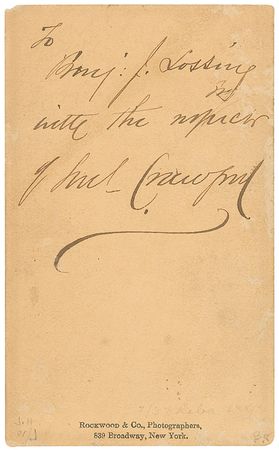 To
Benj: J. Lossing
with the respects
of Crawford
ROCKWOOD & CO., Photographers,
839 Broadway, New York.